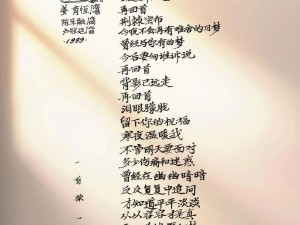 姜育恒
陈乐融
卢冠廷
1989
再回首
荆棘密布
今夜不会再有难舍的旧梦
曾经与你有的梦
今后要向谁诉说
再回首
背影已远走
再回首
泪眼朦胧
留下你的祝福
寒夜温暖我
不管明天要面对
多少伤痛和迷惑
曾经在幽幽暗暗
反反复复中追问
才知道平平淡淡
从从容容才是真
一首歌一